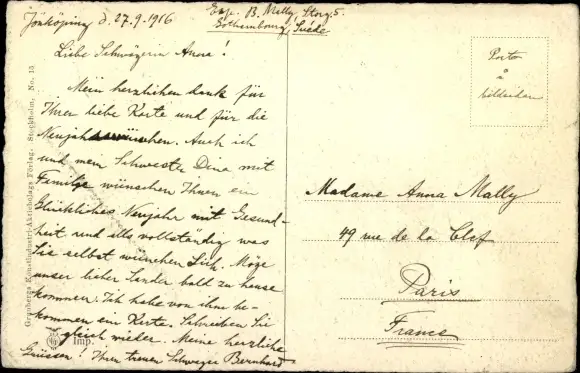 Jönköping d. 27.9.1916
Exp. B. Mally, Storg. 5.
Gothembourg, Suéde
Liebe Schwägerin Anna!
Mein herzlichen dank für
Ihrer liebe Karte und für die
Neujahrswünchen. Auch ich
und mein Schwester Dina mit
Familje wünschen Ihnen ein
Glückliches Neujahr mit Gesund-
heit und alls vollständig was
Sie selbst wünchen Sich. Möge
unser lieber Sender bald zu hause
kommen. Ich habe von ihm be-
kommen ein Karte. Schreiben Sie
gleich wieder. Meine herzliche
Grüssen! Ihren treuen Schwager Bernhard
Porto
å
bildsidan
Madame Anna Mally
49 rue de la Clef
Paris
France
Granbergs Konstindustri-Aktiebolags Förlag. Stockholm. No. 15
Imp.